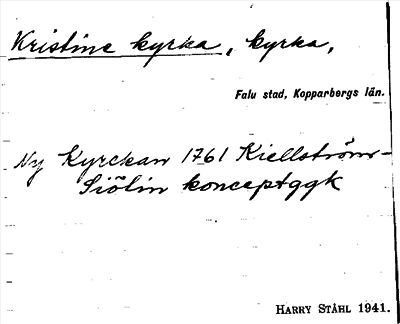 Kristine kyrka, kyrka,
Falu stad, Kopparbergs län.
Ny Kyrckan 1761 Kiellström-
Siölin konceptggk
HARRY STÅHL 1941.